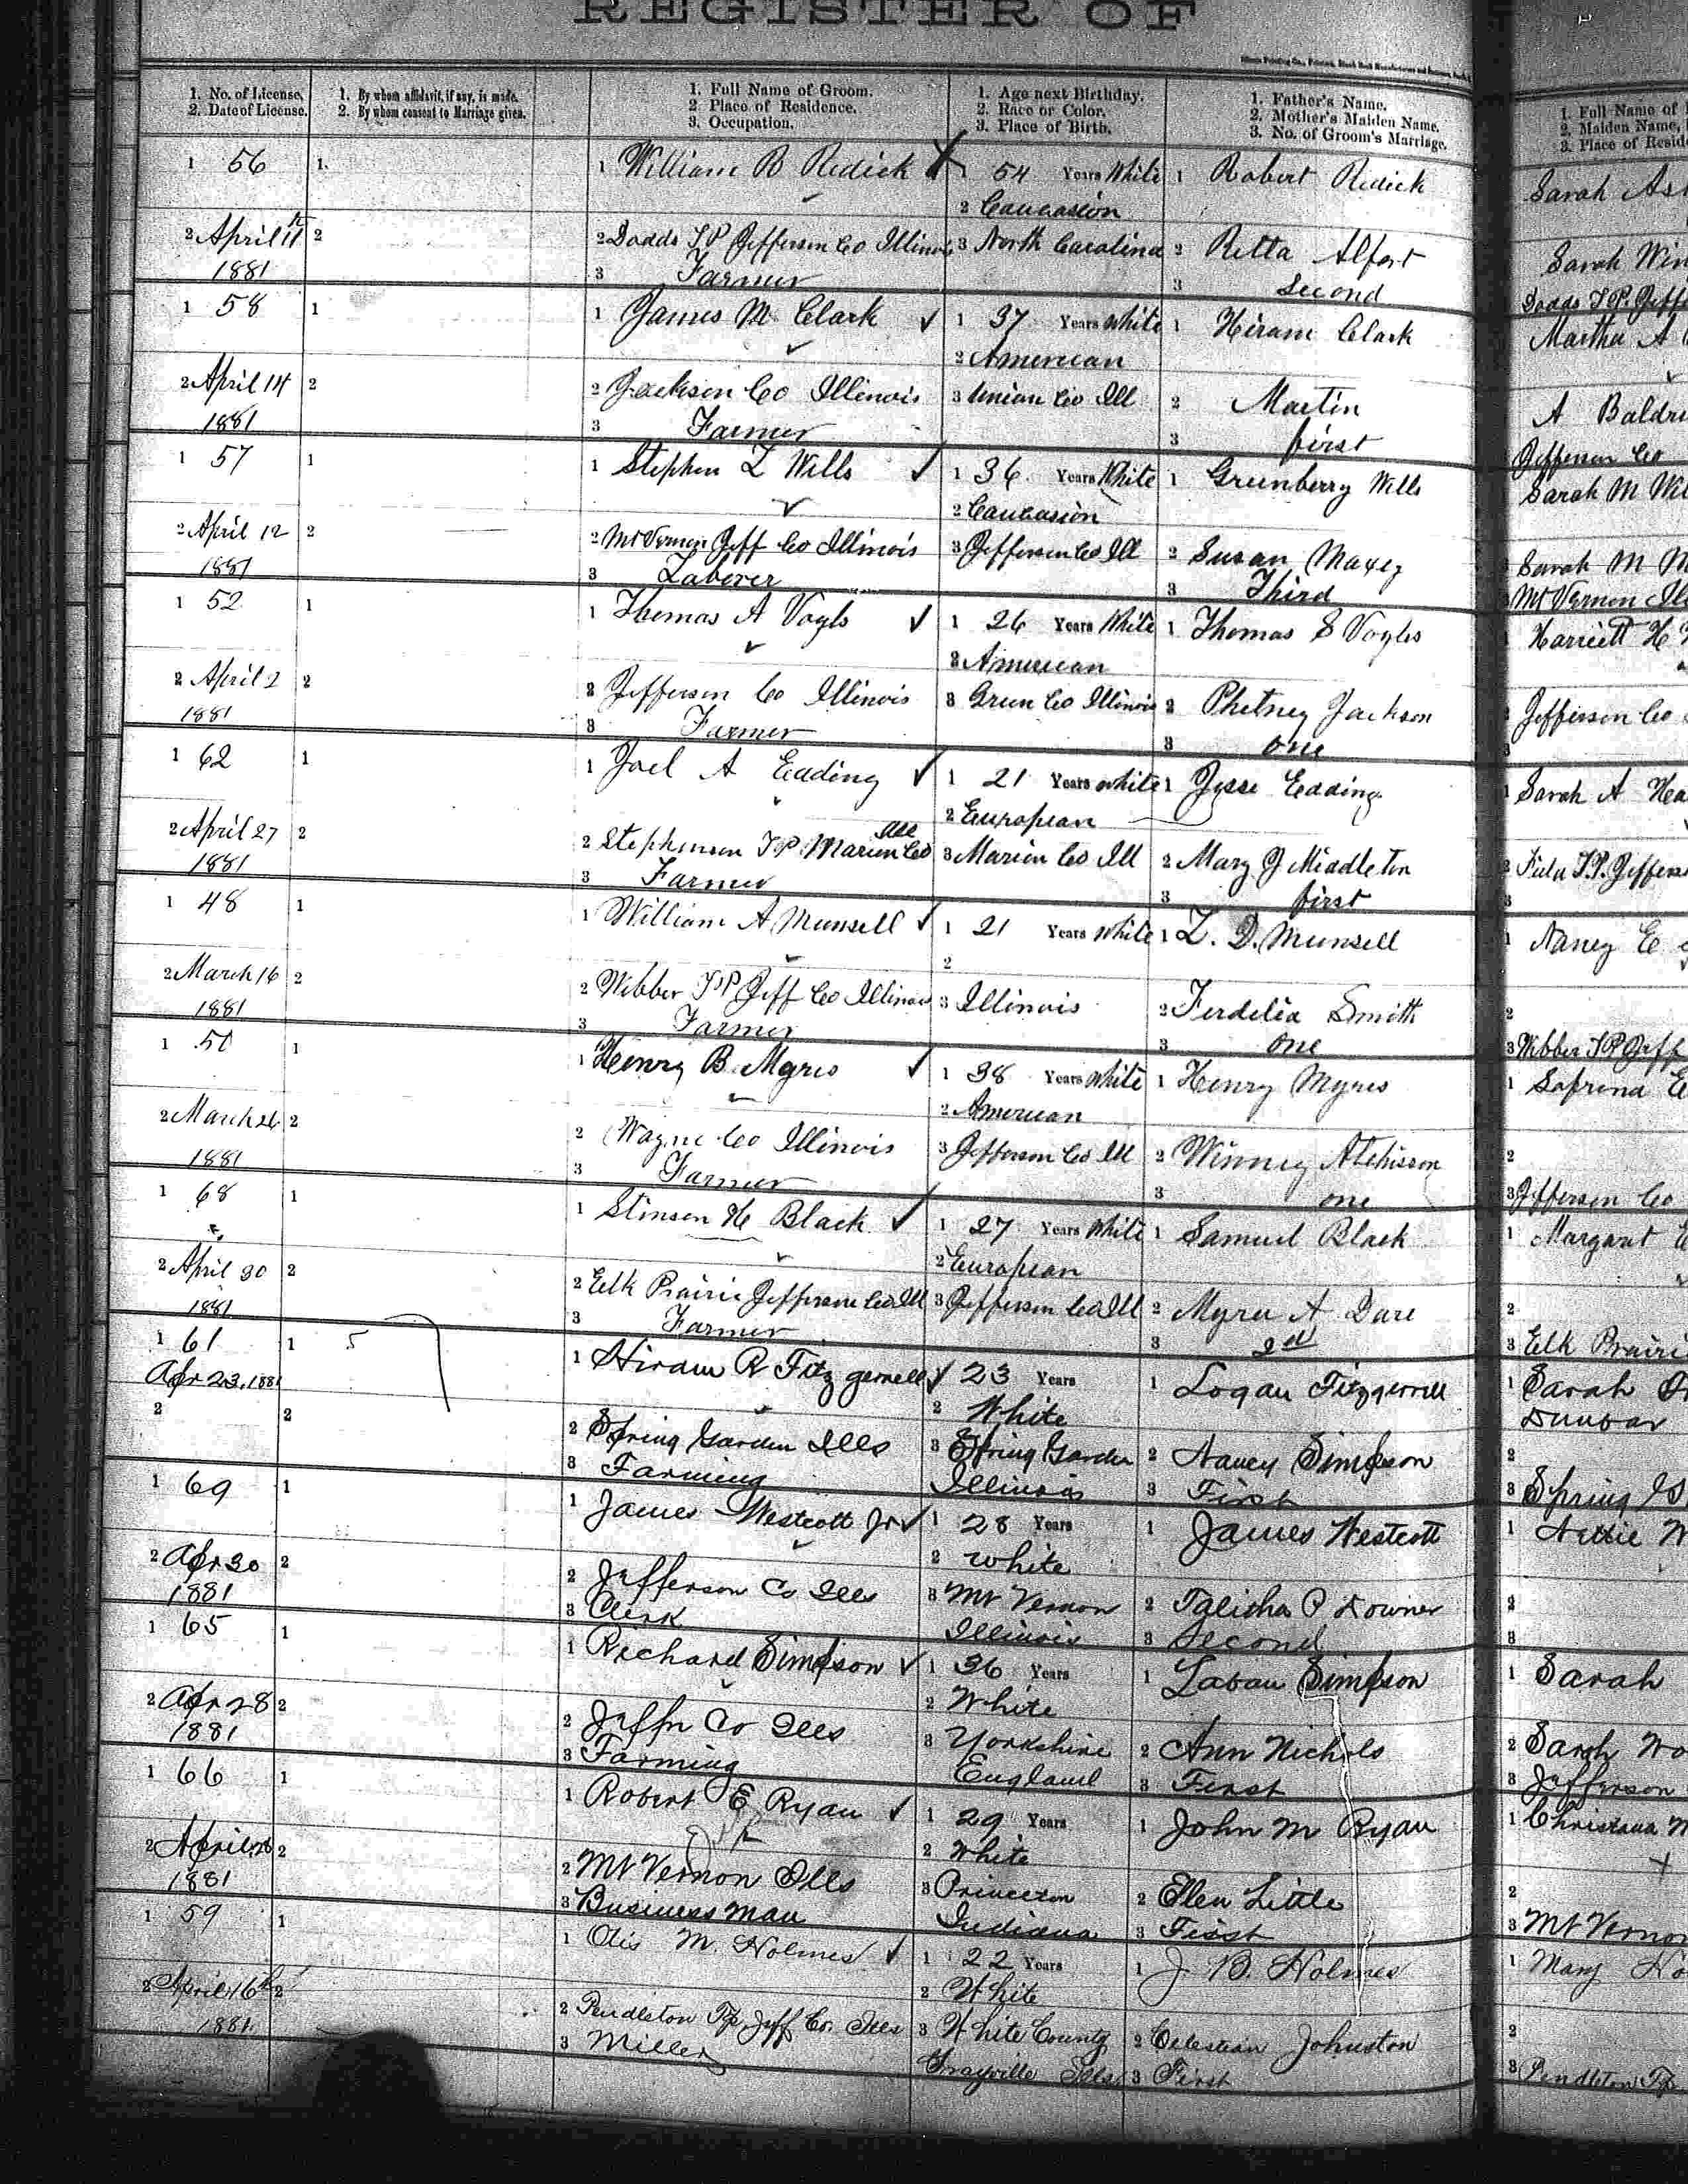 REGISTER OF
1. No. of License.
2. Date of License.
1. By whom affidavit, if any, is made.
2. By whom consent to Marriage given.
1. Full Name of Groom.
2. Place of Residence.
3. Occupation.
1. Age next Birthday.
2. Race or Color.
3. Place of Birth.
1. Father's Name.
2. Mother's Maiden Name.
3. No. of Groom's Marriage.
1. Full Name of
2. Maiden Name,
3. Place of Resid
1 56 1. 1 William B Redick 1 54 Years White 1 Robert Redick Sarah As
2 Caucasion
2 April 11 2 2 Dodds T P Jefferson Co Illinois 3 North Carolina 2 Retta Alfort Sarah Win
1881 3 Farmer 3 Second Dodds T.P. Jeff
1 58 1 1 James M Clark 1 37 Years White 1 Hiram Clark Martha A
2 American
2 April 14 2 2 Jackson Co Illinois 3 Union Co Ill 2 Martin A Baldr
1881 3 Farmer 3 first Jefferson Co
1 57 1 1 Stephen L Wills 1 36 Years White 1 Greenberry Wills Sarah M
2 Caucasion
2 April 12 2 2 Mt Vernon Jeff Co Illinois 3 Jefferson Co Ill 2 Susan Maxey Sarah M
1881 3 Laborer 3 Third Mt Vernon
1 52 1 1 Thomas A Vogls 1 26 Years White 1 Thomas S Vogls Harriett H
2 American
2 April 2 2 2 Jefferson Co Illinois 3 Green Co Illinois 2 Phetney Jackson Jefferson Co
1881 3 Farmer 3 one
1 62 1 1 Joel A Edding 1 21 Years White 1 Jesse Edding Sarah A
2 European
2 April 27 2 2 Stephenson T P. Marion Co Ill 3 Marion Co Ill 2 Mary J Middleton T.P. Jefferson
1881 3 Farmer 3 first
1 48 1 1 William A Munsell 1 21 Years White 1 L. D. Munsell 1 Nancy E
2
2 March 16 2 2 Webber T P Jeff Co Illinois 3 Illinois 2 Ferdelia Smith 2
1881 3 Farmer 3 one 3 Webber T P Jeff
1 50 1 1 Henry B Myres 1 38 Years White 1 Henry Myres 1 Saprena E
2 American
2 March 26 2 2 Wayne Co Illinois 3 Jefferson Co Ill 2 Winney Atchisson 2
1881 3 Farmer 3 one 3 Jefferson Co
1 68 1 1 Stinson H Black 1 27 Years White 1 Samuel Black 1 Margaret E
2 European
2 April 30 2 2 Elk Prairie Jefferson Co Ill 3 Jefferson Co Ill 2 Myra A Dare 2
1881 3 Farmer 3 2nd 3 Elk Prairi
1 61 1 5 1 Hiram R Fitzgerrell 1 23 Years 1 Logan Fitzgerrell 1 Sarah
Apr 23, 1881 2 White Dunbar
2 2 2 Spring Garden Ills 3 Spring Garden 2 Nancy Simpson 2
3 Farming Illinois 3 First 3 Spring G
1 69 1 1 James Westcott Jr 1 28 Years 1 James Westcott 1 Nettie W
2 White
2 Apr 30 2 2 Jefferson Co Ills 3 Mt Vernon 2 Talitha P Downer 2
1881 3 Clerk Illinois 3 Second 3
1 65 1 1 Richard Simpson 1 36 Years 1 Laban Simpson 1 Sarah
2 White
2 Apr 28 2 2 Jeffn Co Ills 3 Yorkshire 2 Ann Nichols 2 Sarah Wo
1881 3 Farming England 3 First 3 Jefferson
1 66 1 1 Robert E Ryan 1 29 Years 1 John M Ryan 1 Christana
2 White
2 April 28 2 2 Mt Vernon Ills 3 Princeton 2 Ellen Little 2
1881 3 Business man Indiana 3 First 3 Mt Vernon
1 59 1 1 Otis M. Holmes 1 22 Years 1 J. B. Holmes 1 Mary
2 White
2 April 16th 2 2 Pendleton Tp. Jeff Co. Ills 3 White County 2 Celestian Johnston 2
1881. 3 Miller Grayville Ills 3 First 3 Pendleton Tp